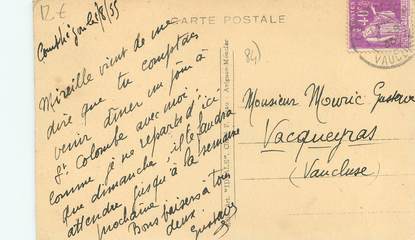 12 €
CARTE POSTALE
84)
Mireille vient de me
dire que tu comptais
venir dîner un jour à
St Colombe avec moi.
comme je ne repars d'ici
que dimanche, il te faudra
attendre jusqu'à la semaine
prochaine.
Bons baisers à tous
deux
Gustave
Monsieur Mouric Gustave
Vacqueyras
(Vaucluse)
VAUCL